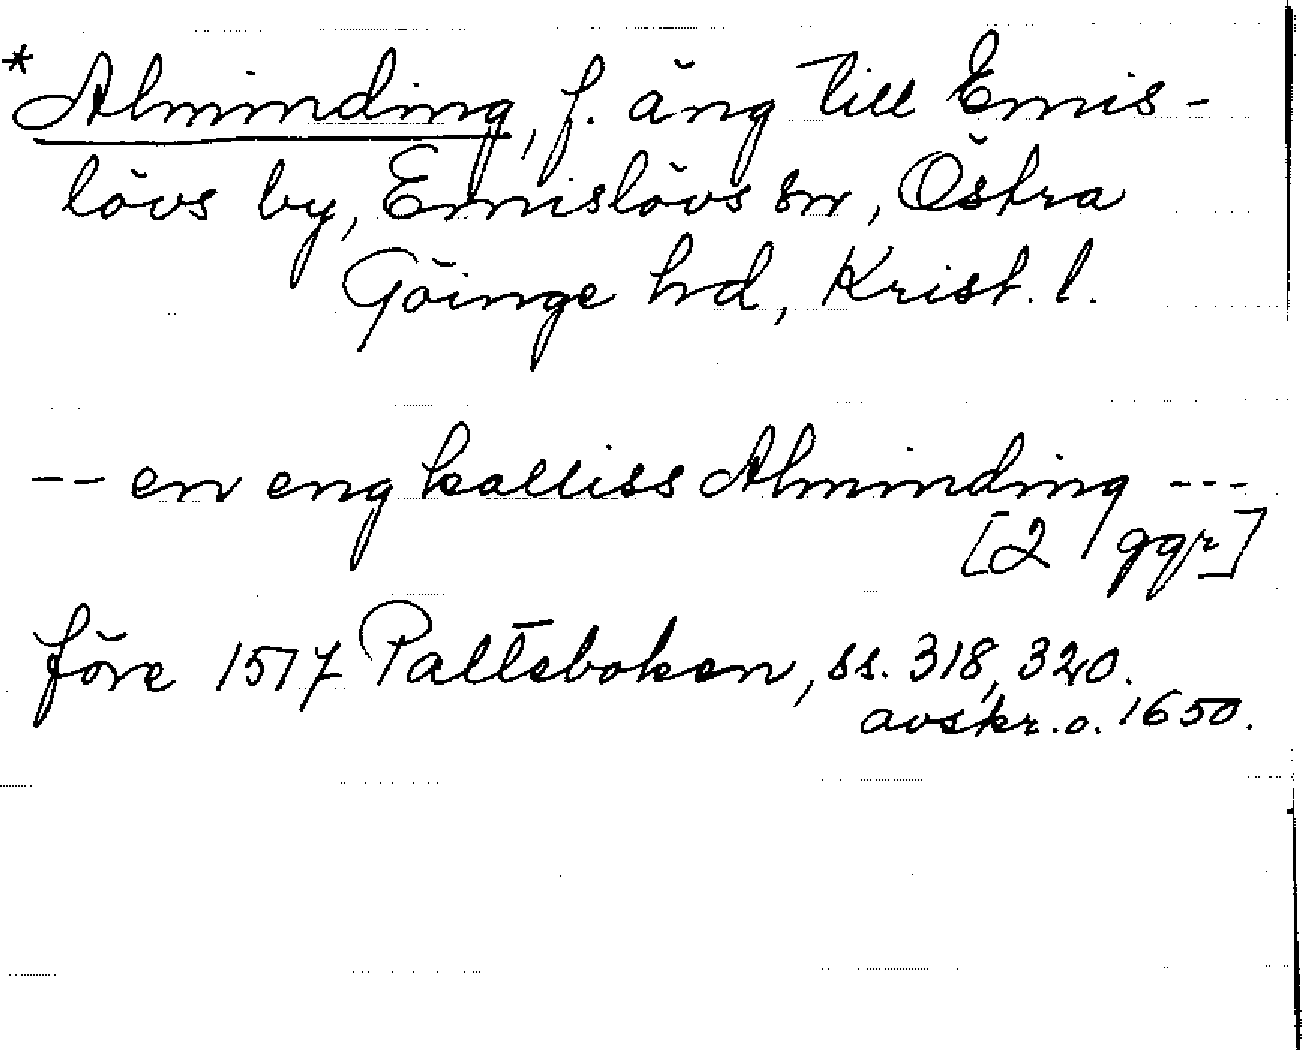 *Alminding, f. äng till Emis-
lövs by, Emislövs sn, Östra
Göinge hd, Krist. l.
-- en eng kalliss Alminding ---
[2 ggr]
före 1517 Palteboken, ss. 318, 320.
avskr. o. 1650.